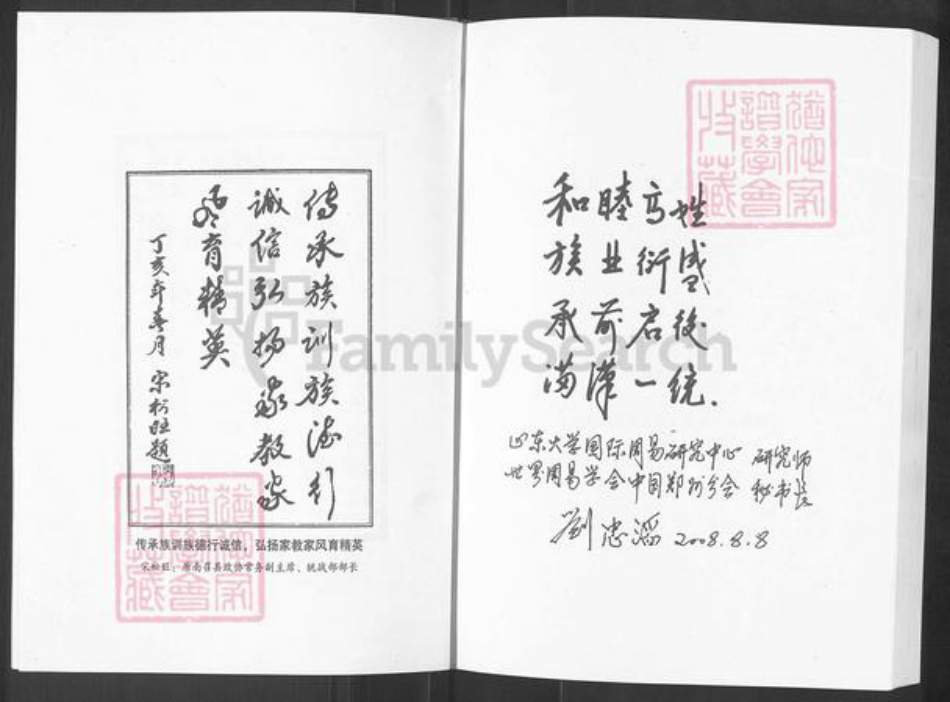 传承族训族德行
诚信弘扬家教家
风育精英
丁亥年春月 宋松旺题
传承族训族德行诚信，弘扬家教家风育精英
宋松旺：原南召县政协常务副主席、统战部部长
和睦高姓
族业衍盛
承前启後
满漢一统.
山东大学国际周易研究中心 研究师
世界周易学会中国郑州分会 秘书长
劉忠滔 2008.8.8
猶他家
譜學會
收藏
猶他家
譜學會
收藏
FamilySearch